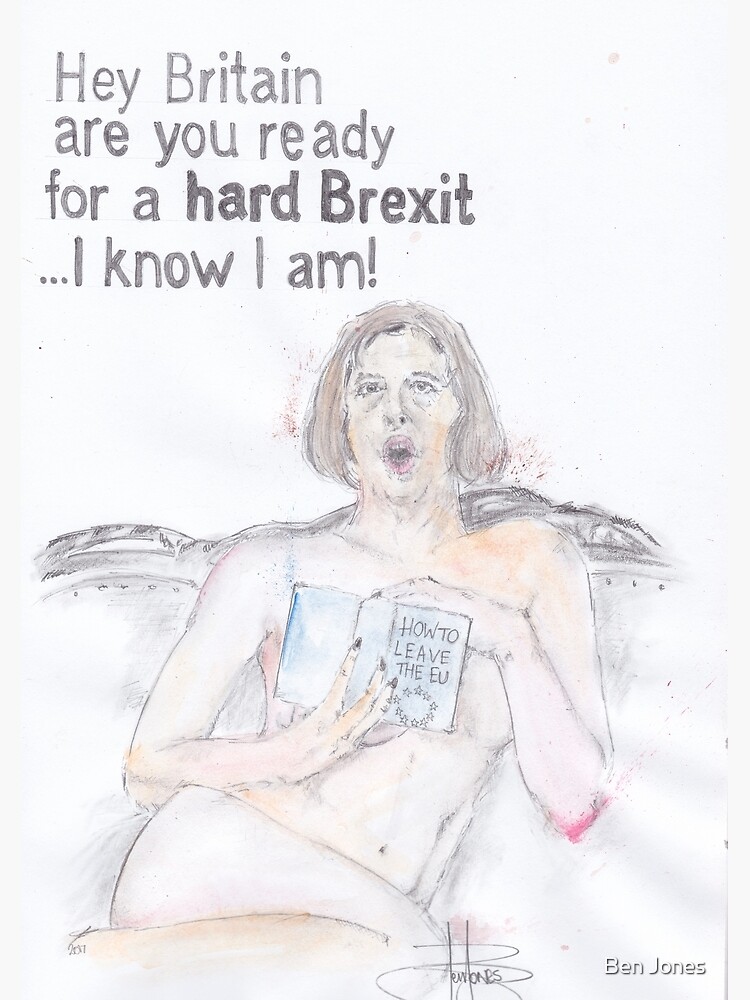 Hey Britain
are you ready
for a hard Brexit
...I know I am!
HOW TO
LEAVE
THE EU
2017
Ben Jones
Ben Jones